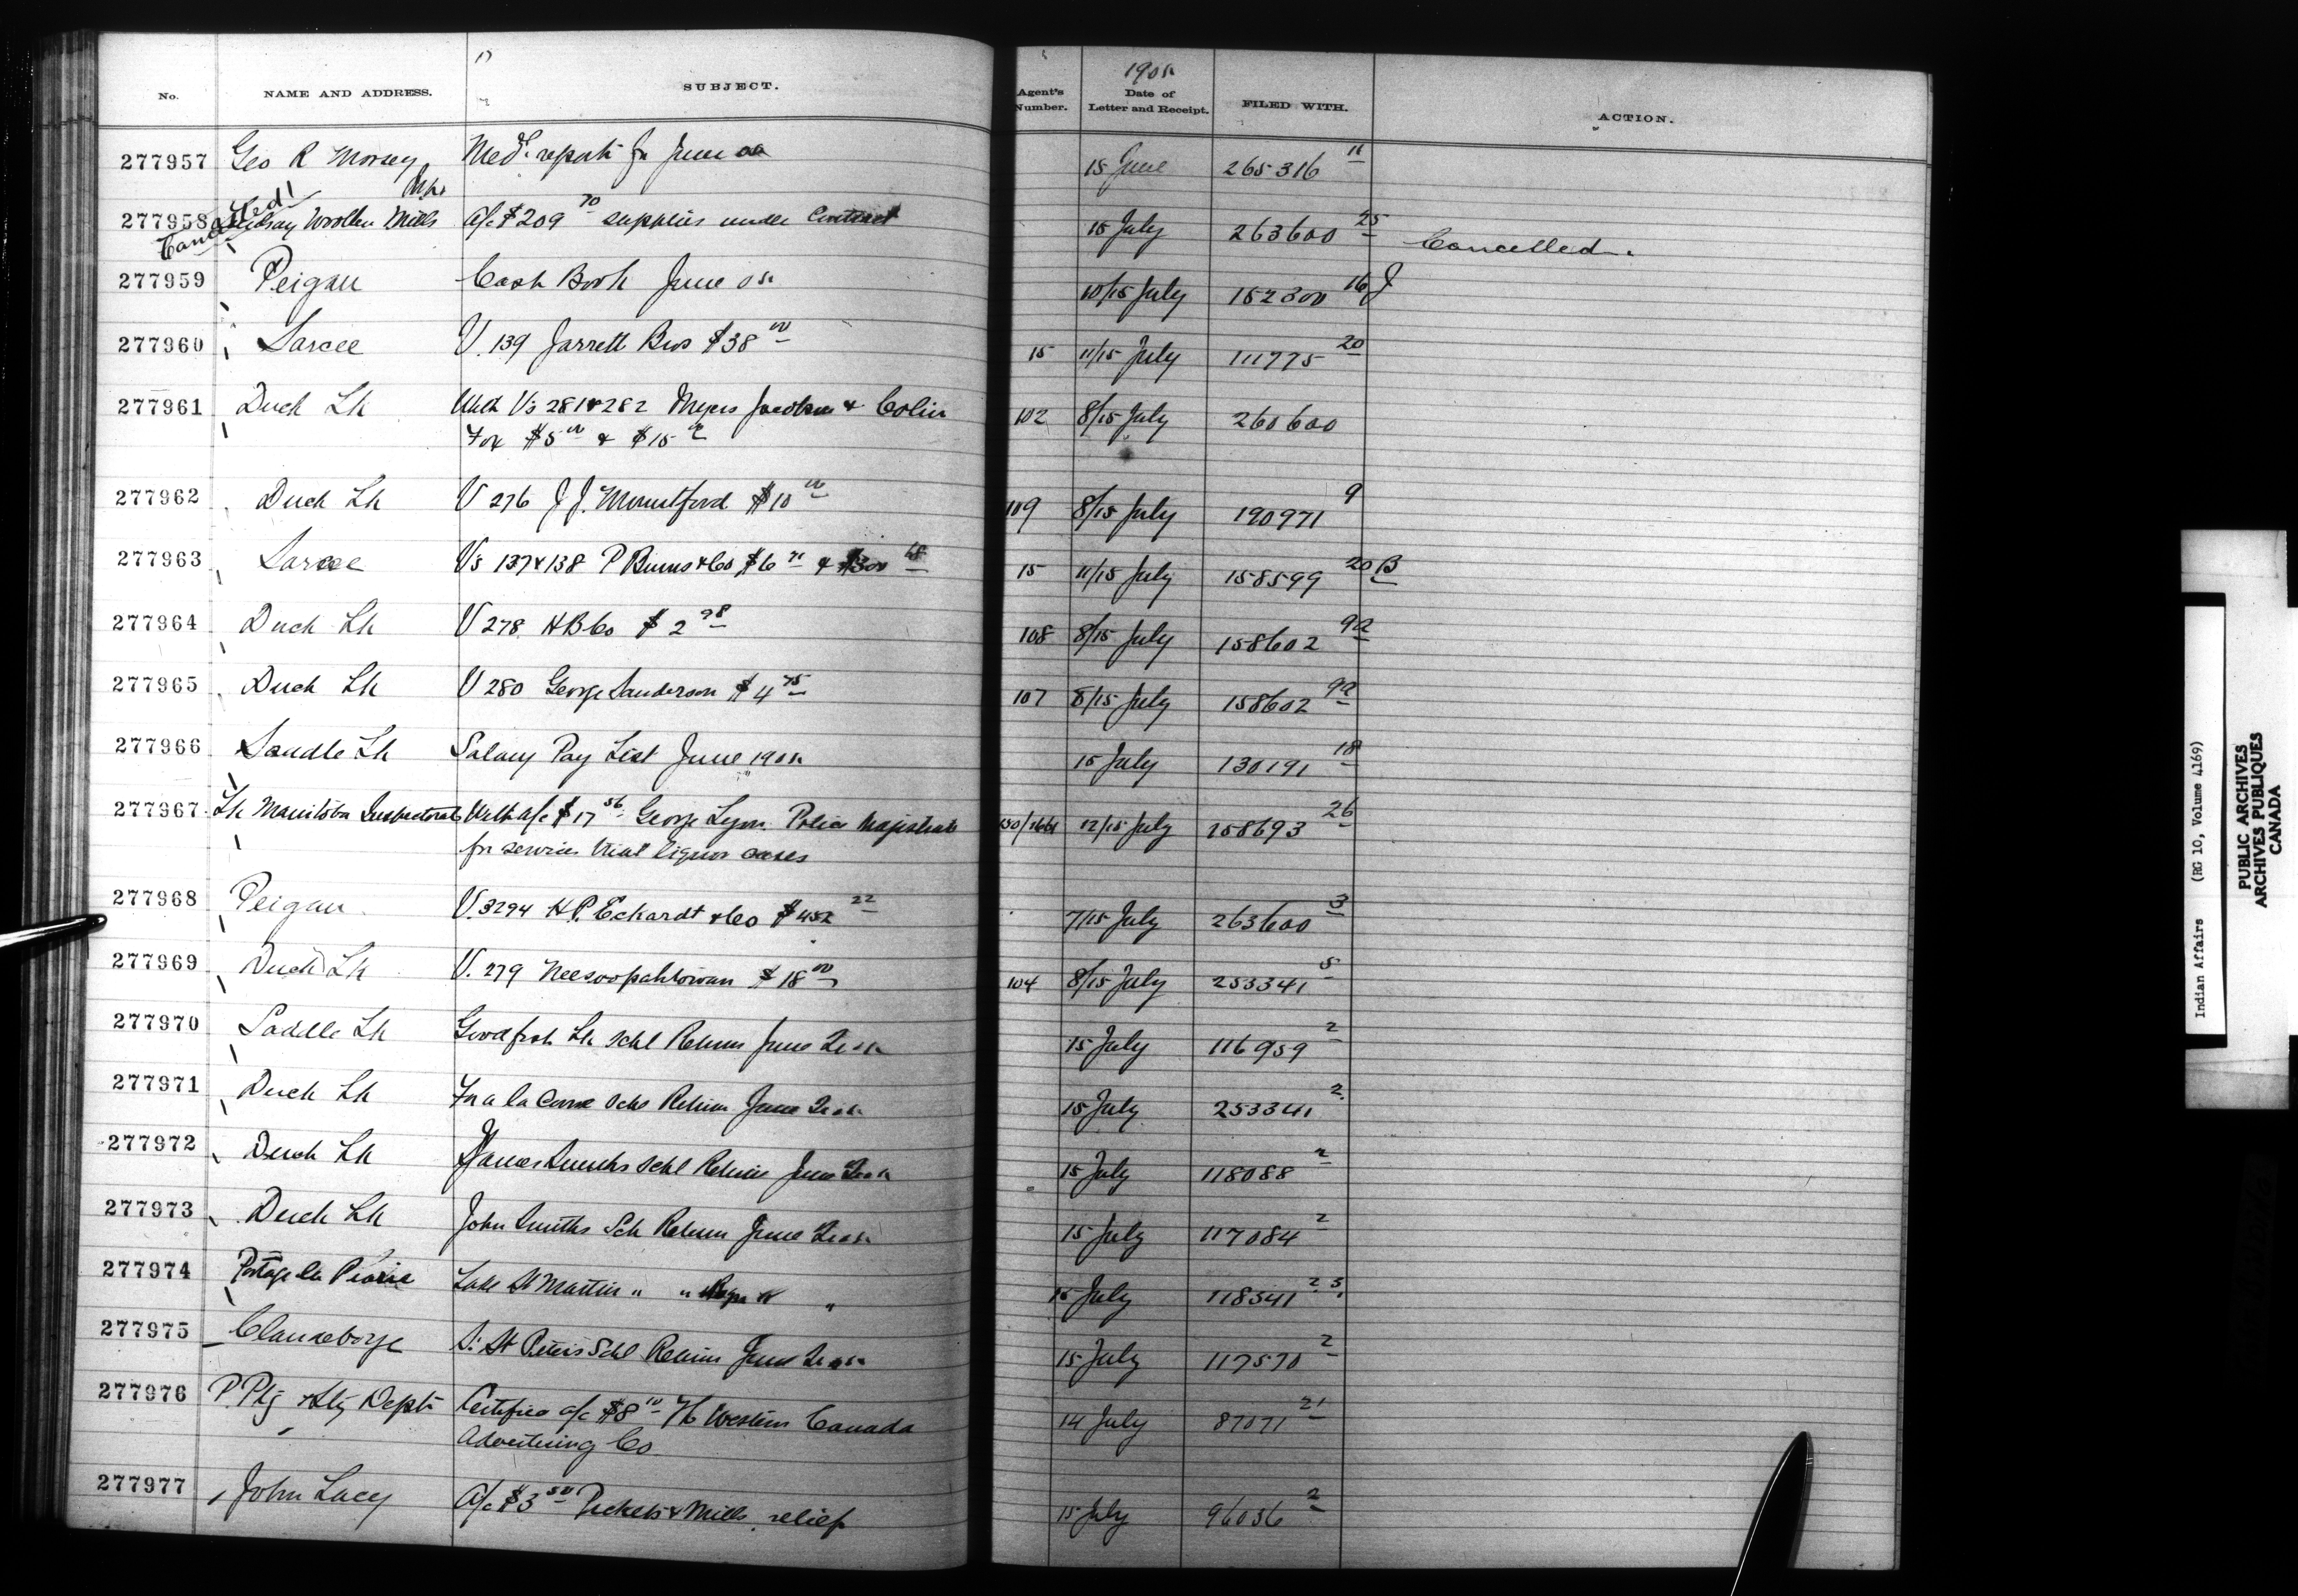 1905
No. NAME AND ADDRESS. SUBJECT. Agent's Number. Date of Letter and Receipt. FILED WITH. ACTION.
277957 Geo R Med. report for June 15 June 265316 11
277958 Woollen Mills a/c $209 70 supplies under Contract 15 July 263600 25 Cancelled.
Cancelled
277959 Peigan Cash Book June 05 10/15 July 152300 16 J
277960 Sarcee V. 139 Jarrett Bros $38 00 15 11/15 July 111775 20
277961 Duck Lk With Vs 281 & 282 Myers & Colin 102 8/15 July 260600
Fox $5 00 & $15 00
277962 Duck Lk V 276 J J. Mountford $10 00 109 8/15 July 190971 9
277963 Sarcee Vs 137 & 138 P Burns & Co $6 & $300 15 11/15 July 158599 20 B
277964 Duck Lk V 278 HB Co $2 98 108 8/15 July 158602 9a
277965 Duck Lk V 280 George Sanderson $4 75 107 8/15 July 158602 9a
277966 Saddle Lk Salary Pay List June 1905 15 July 130191 18
277967 Lk Manitoba Inspectorate With a/c $17 56 George Lyon Police Magistrate 12/15 July 158693 26
for services trial liquor cases
277968 Peigan V. 3294 H.P. Eckardt & Co $452 22 7/15 July 263600 3
277969 Duck Lk V. 279 Neesoopahtowan $18 00 104 8/15 July 253341 5
277970 Saddle Lk Goodfish Lk Schl Return June Qr 05 15 July 116959 2
277971 Duck Lk Ft a la Corne Schl Return June Qr 05 15 July 253341 2
277972 Duck Lk James Smiths Schl Return June Qr 05 15 July 118088 2
277973 Duck Lk John Smiths Sch Return June Qr 05 15 July 117084 2
277974 Portage la Prairie Lake St Martin " " " 15 July 118541 2
277975 Clandeboye S. St Peters Schl Return June Qr 05 15 July 117570 2
277976 P. Ptg & Sty Dept Certified a/c $8 10 Western Canada 14 July 87071 21
Advertising Co
277977 John Lacy a/c $3 50 & Mills relief 15 July 96036 2
Indian Affairs (RG 10, Volume 4169)
PUBLIC ARCHIVES
ARCHIVES PUBLIQUES
CANADA